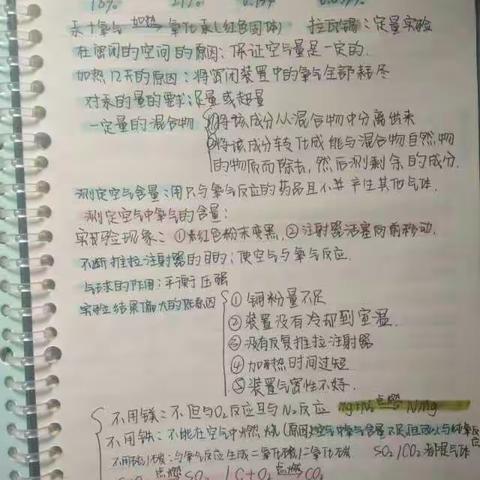 78% 21%
汞+氧气 加热→ 氧化汞(红色固体) 拉瓦锡：定量实验
在密闭的空间的原因：保证空气量是一定的.
加热12天的原因：将密闭装置中的氧气全部耗尽
对汞的量的要求：足量或超量
一定量的混合物 ①将该成分从混合物中分离出来
②将该成分转化成能与混合物自然物
的物质而除去，然后测剩余的成分.
测定空气含量：用只与氧气反应的药品且不并产生其他气体.
测定空气中氧气的含量：
实验现象：①紫红色粉末变黑，②注射器活塞向前移动.
不断推拉注射器的目的：使空气与氧气反应.
气球的作用：平衡压强
实验结果偏大的原因 ①铜粉量不足
②装置没有冷却到室温.
③没有反复推拉注射器
④加热时间过短
⑤装置气密性不好.
不用镁：不但与O₂反应且与N₂反应 点燃
不用铁：不能在空气中燃烧(原因：空气中氧气含量不足，但可以与纯氧反应
不用硫/碳：与氧气反应生成二氧化硫/二氧化碳 SO₂/CO₂都是气体
点燃 SO₂ C+O₂ 点燃 CO₂